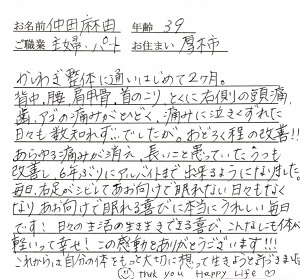 お名前 仲田麻由 年齢 39
ご職業 主婦・パート お住まい 厚木市
かしわぎ整体に通いはじめて2ヶ月。
背中、腰、肩甲骨、首のこり、とくに右側の頭痛、
歯、アゴの痛みがひどく、痛みに泣きくずれた
日々も数知れず…でしたが。おどろく程の改善!!
あらゆる痛みが消え、長いこと患っていたうつも
改善し、6年ぶりにアルバイトまで出来るようになりました。
毎日、右足がシビレてあお向けで眠れない日々もなく
なりあお向けで眠れる喜びに本当にうれしい毎日
です! 日々の生活の生き生きできる喜び、こんなにも体が
軽いって幸せ! この感動をありがとうございます!!!
これからは自分の体をもっと大切に想って生きようと
thank you Happy Life